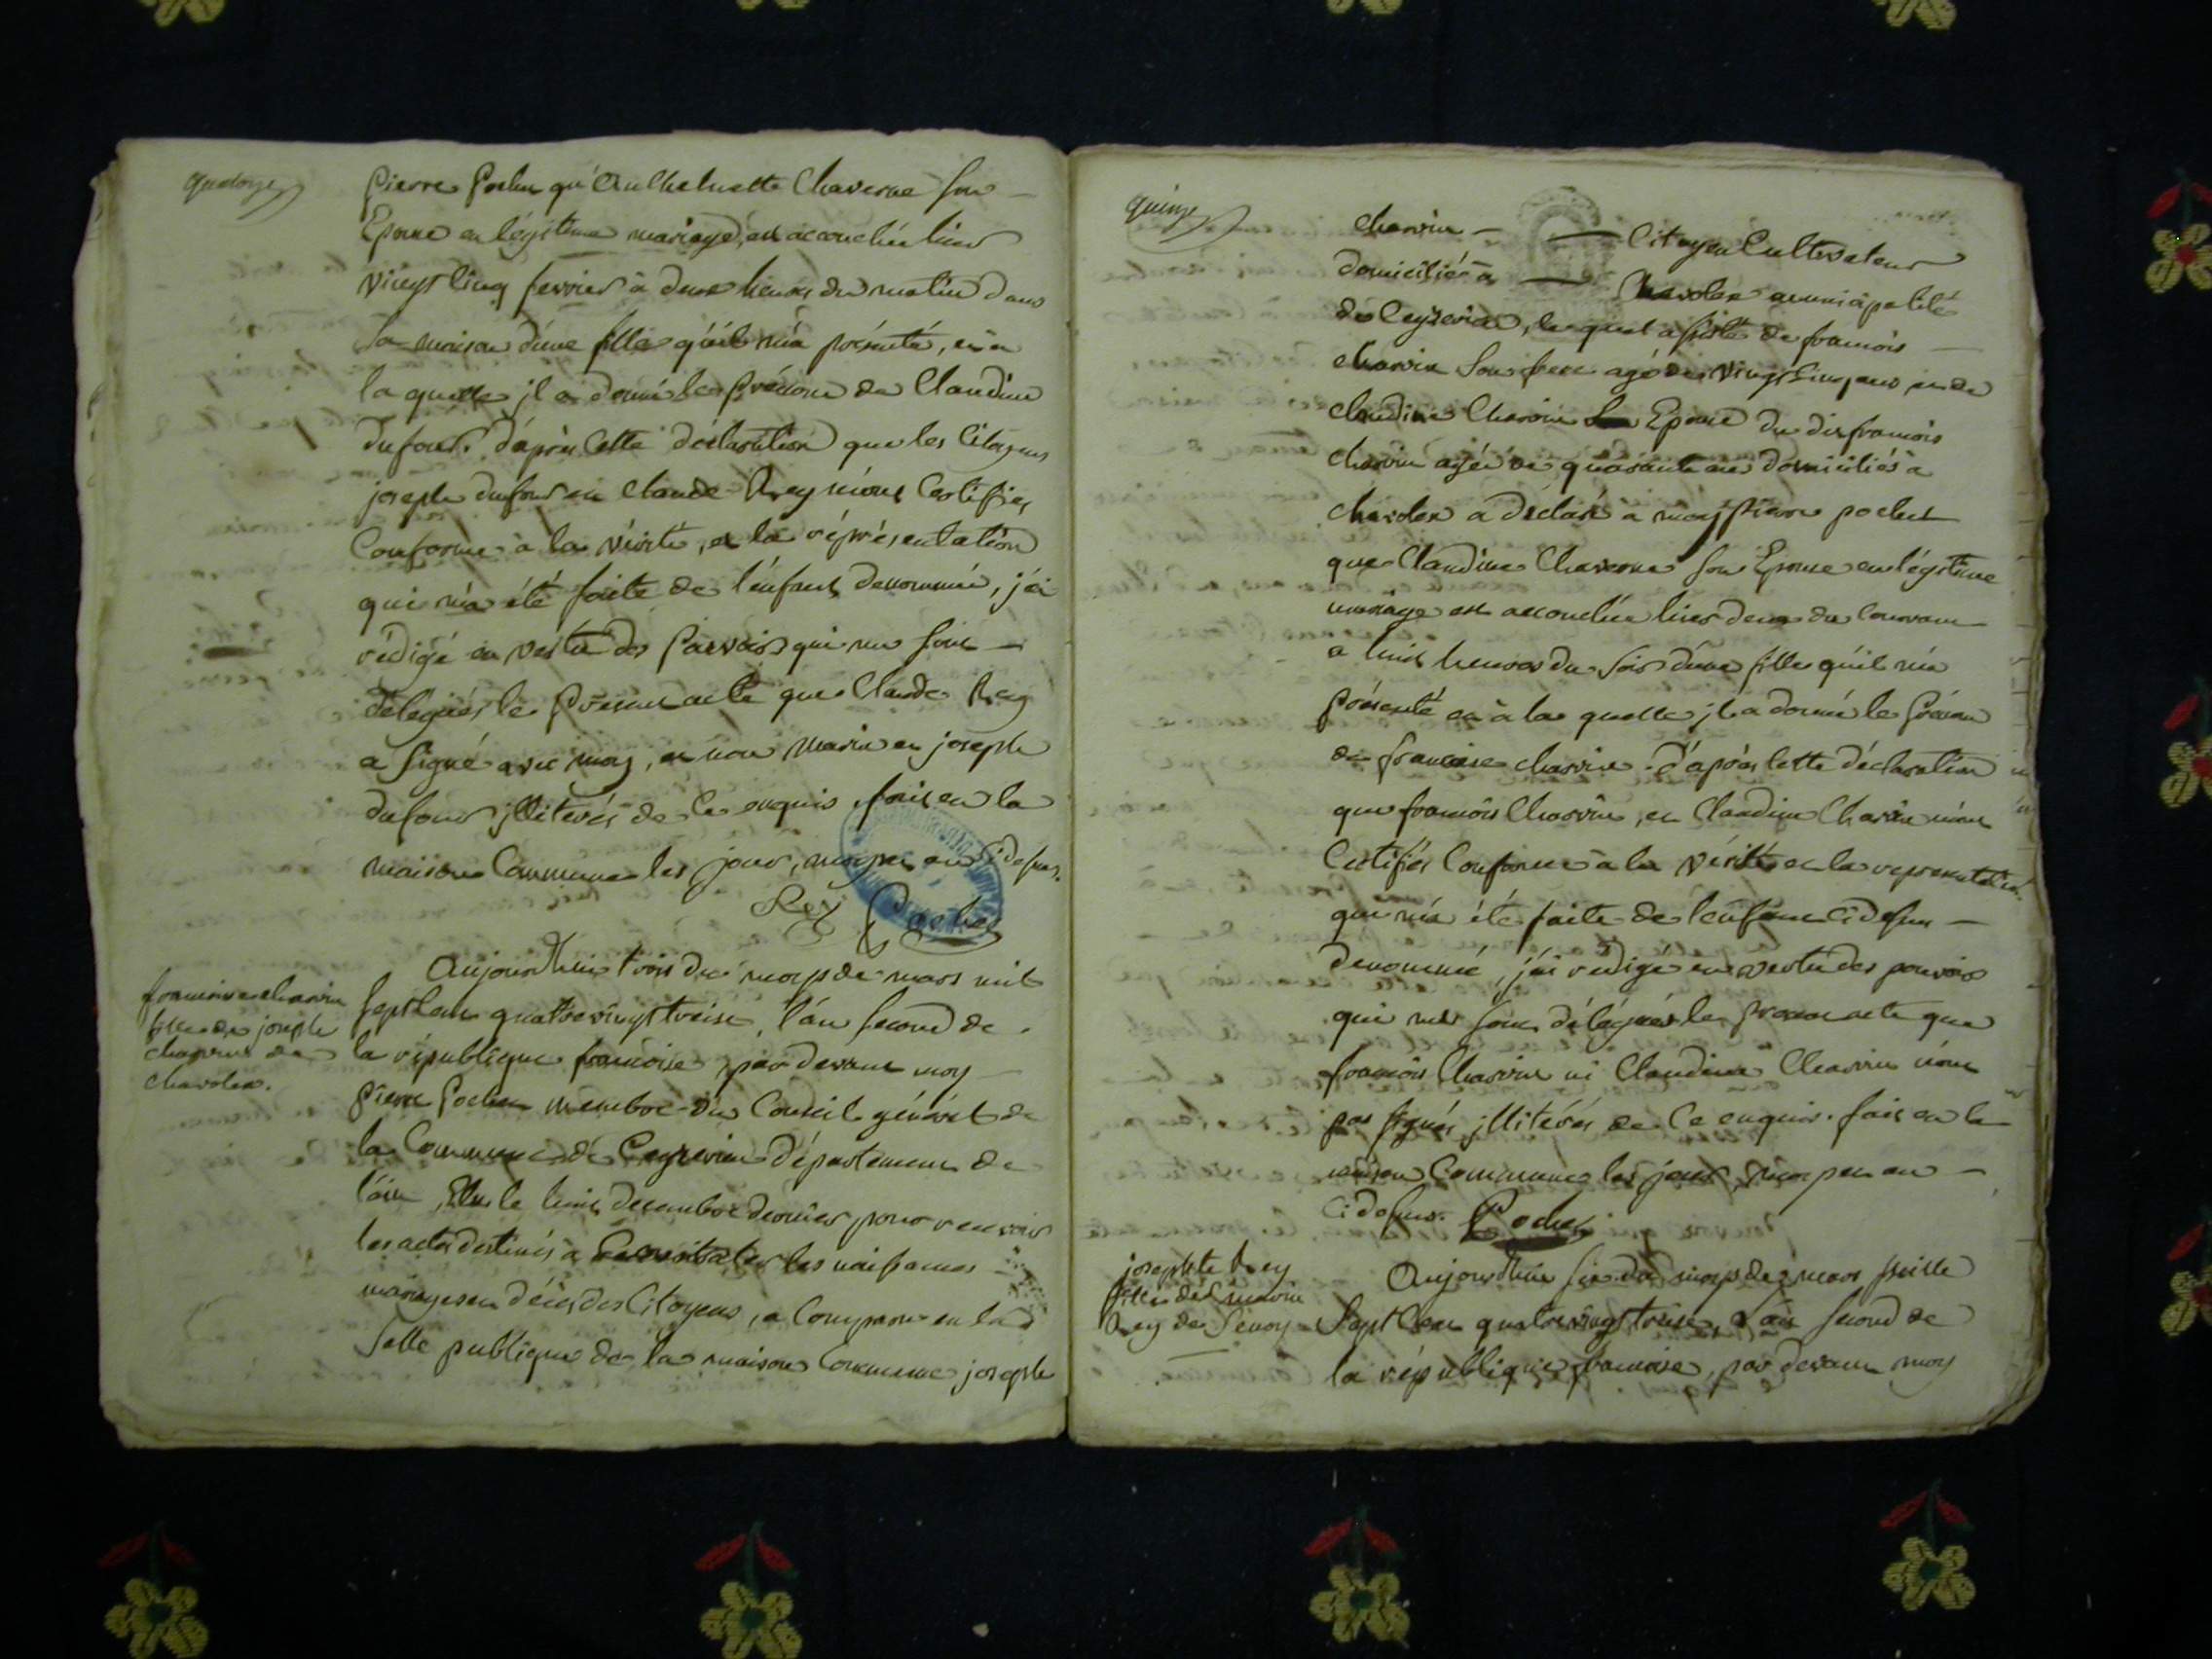 quatorze
Pierre Pochet qu'Anthelmette Chaverne son
Epouse en légitime mariage, est accouchée hier
vingt cinq fevrier à deux heures du matin dans
sa maison d'une fille qu'il m'a présenté, et a
la quelle il a donné le prénom de Claudine
dufour. d'après cette déclaration que les Citoyens
joseph dufour et Claude Rey m'ont Certifiés
Conforme à la vérité, et la réprésentation
qui m'a été faite de l'enfant denommée, j'ai
rédigé en vertu des pouvoirs qui me sont
délégués le présent acte que Claude Rey
a signé avec moy, et non Marin et joseph
dufour illiterés de ce enquis. fait en la
maison Commune les jour, moys et an Cidessus.
Rey Pochet
francoise charvin
fille de joseph
charvin de
charolex.
Aujourdhui trois du moys de mars mil
sept cent quatrevingt treise, l'an second de
la république francoise, par devant moy
Pierre Pochet membre du Conseil général de
la Commune de Ceyzerieu département de
l'ain, Elu le huit decembre dernier pour recevoir
les actes destinés à Constater les naissances
mariages et décès des Citoyens, a Comparu en la
salle publique de la maison Commune joseph
quinze
charvin Citoyen Cultivateur
domicilié à Charolex municipalité
de Ceyzerieu, lequel assisté de francois
charvin son frere agé de vingt cinq ans, et de
Claudine Charvin Epouse du dit francois
charvin agée de quarante ans domiciliés à
charolex a déclaré à moy Pierre pochet
que Claudine Chaverne son Epouse en légitime
mariage est accouchée hier deux du Courant
a huit heures du soir d'une fille qu'il m'a
présenté et à la quelle il a donné le Prénom
de francoise charvin. d'après cette déclaration
que francois Charvin, et Claudine Charvin m'ont
Certifiés Conforme à la vérité et la representation
qui m'a été faite de l'enfant cidessus
denommé, j'ai redigé en vertu des pouvoirs
qui me sont délégués le present acte que
francois Charvin ni Claudine Charvin n'ont
pas signés illiterés de Ce enquis. fait en la
maison Commune les jour, moys et an
Cidessus. Pochet
josephte Rey
fille de marin
Rey de
Aujourdhui six du moys de mars mille
sept Cent quatrevingt treise, l'an second de
la république francoise, par devant moy